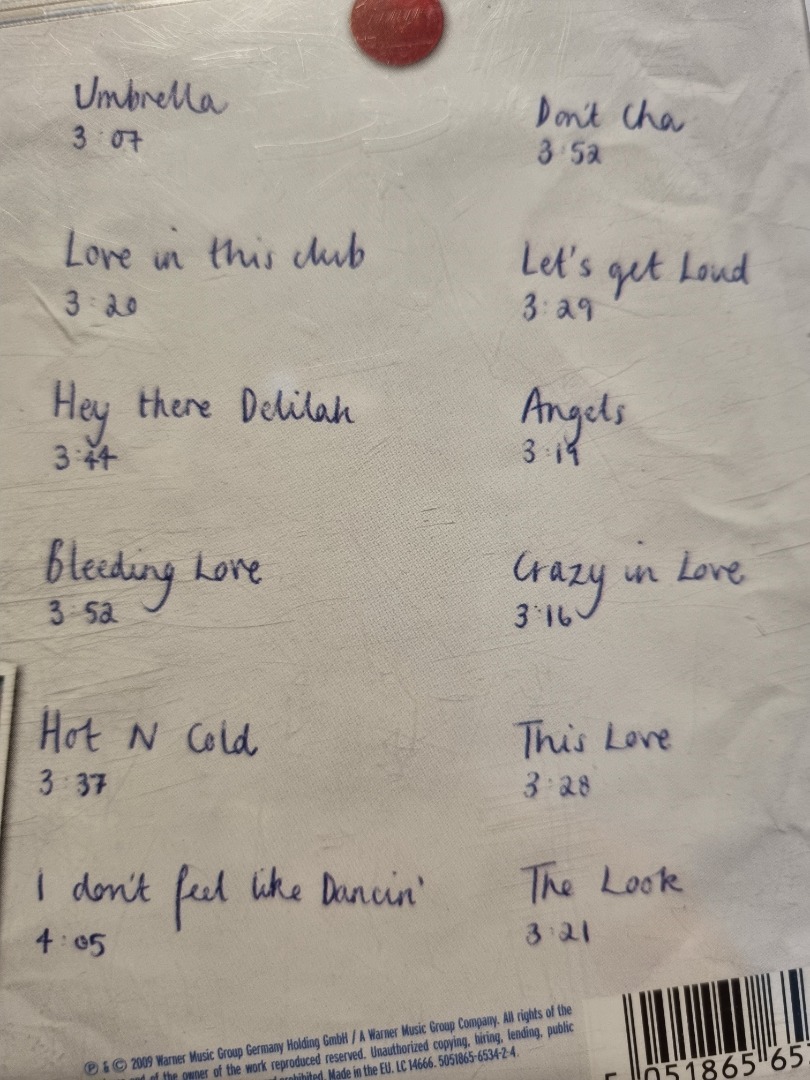 Umbrella
3:07
Love in this club
3:20
Hey there Delilah
3:44
Bleeding Love
3:52
Hot N Cold
3:37
I don't feel like Dancin'
4:05
Don't Cha
3:52
Let's get Loud
3:29
Angels
3:19
Crazy in Love
3:16
This Love
3:28
The Look
3:21
℗ & © 2009 Warner Music Group Germany Holding GmbH / A Warner Music Group Company. All rights of the
of the owner of the work reproduced reserved. Unauthorized copying, hiring, lending, public
prohibited. Made in the EU. LC 14666. 5051865-6534-2-4.
5 051865 65